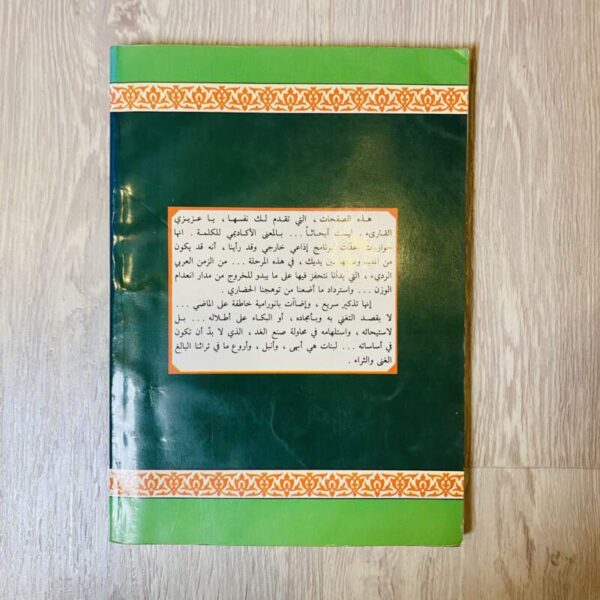 هذه الصفحات ، التي تقدم لك نفسها ، يا عزيزي
القارىء ، ليست أبحاثاً ... بالمعنى الأكاديمي للكلمة . انها
حواريات أعدت لبرنامج إذاعي خارجي وقد رأينا ، أنه قد يكون
من المفيد وضعها بين يديك ، في هذه المرحلة ... من الزمن العربي
الرديء ، التي بدأنا نتحفز فيها على ما يبدو للخروج من مدار انعدام
الوزن ... واسترداد ما أضعنا من توهجنا الحضاري .
إنها تذكير سريع ، وإضاآت بانورامية خاطفة على الماضي ...
لا بقصد التغني به وبأمجاده ، أو البكاء على أطلاله ... بل
لاستيحائه ، واستلهامه في محاولة صنع الغد ، الذي لا بدّ أن تكون
في أساساته ... لبنات هي أبهى ، وأنبل ، وأروع ما في تراثنا البالغ
الغنى والثراء .